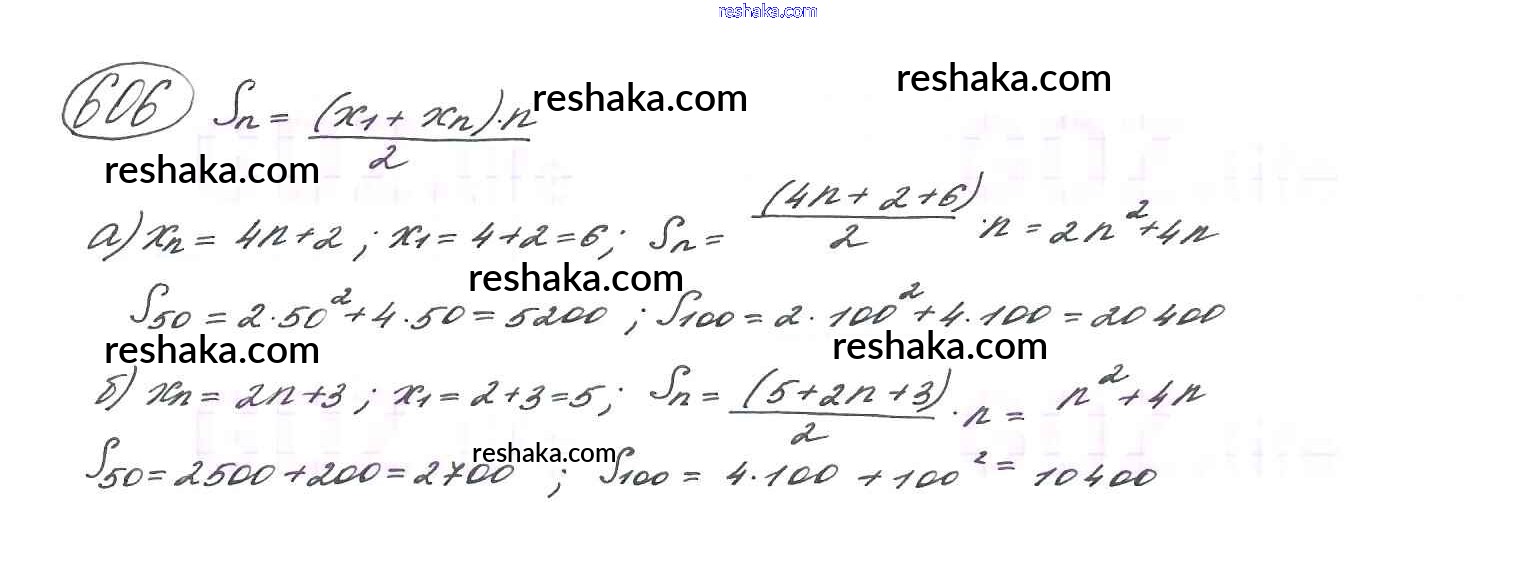 reshaka.com
606 Sₙ = (x₁ + xₙ)·n / 2 reshaka.com reshaka.com
reshaka.com
а) xₙ = 4n+2 ; x₁ = 4+2=6; Sₙ = (4n+2+6) / 2 · n = 2n²+4n
reshaka.com
S₅₀ = 2·50²+4·50=5200 ; S₁₀₀ = 2·100²+4·100 = 20400
reshaka.com reshaka.com
б) xₙ = 2n+3 ; x₁ = 2+3=5; Sₙ = (5+2n+3) / 2 · n = n²+4n
reshaka.com
S₅₀ = 2500+200=2700 ; S₁₀₀ = 4·100 + 100² = 10400